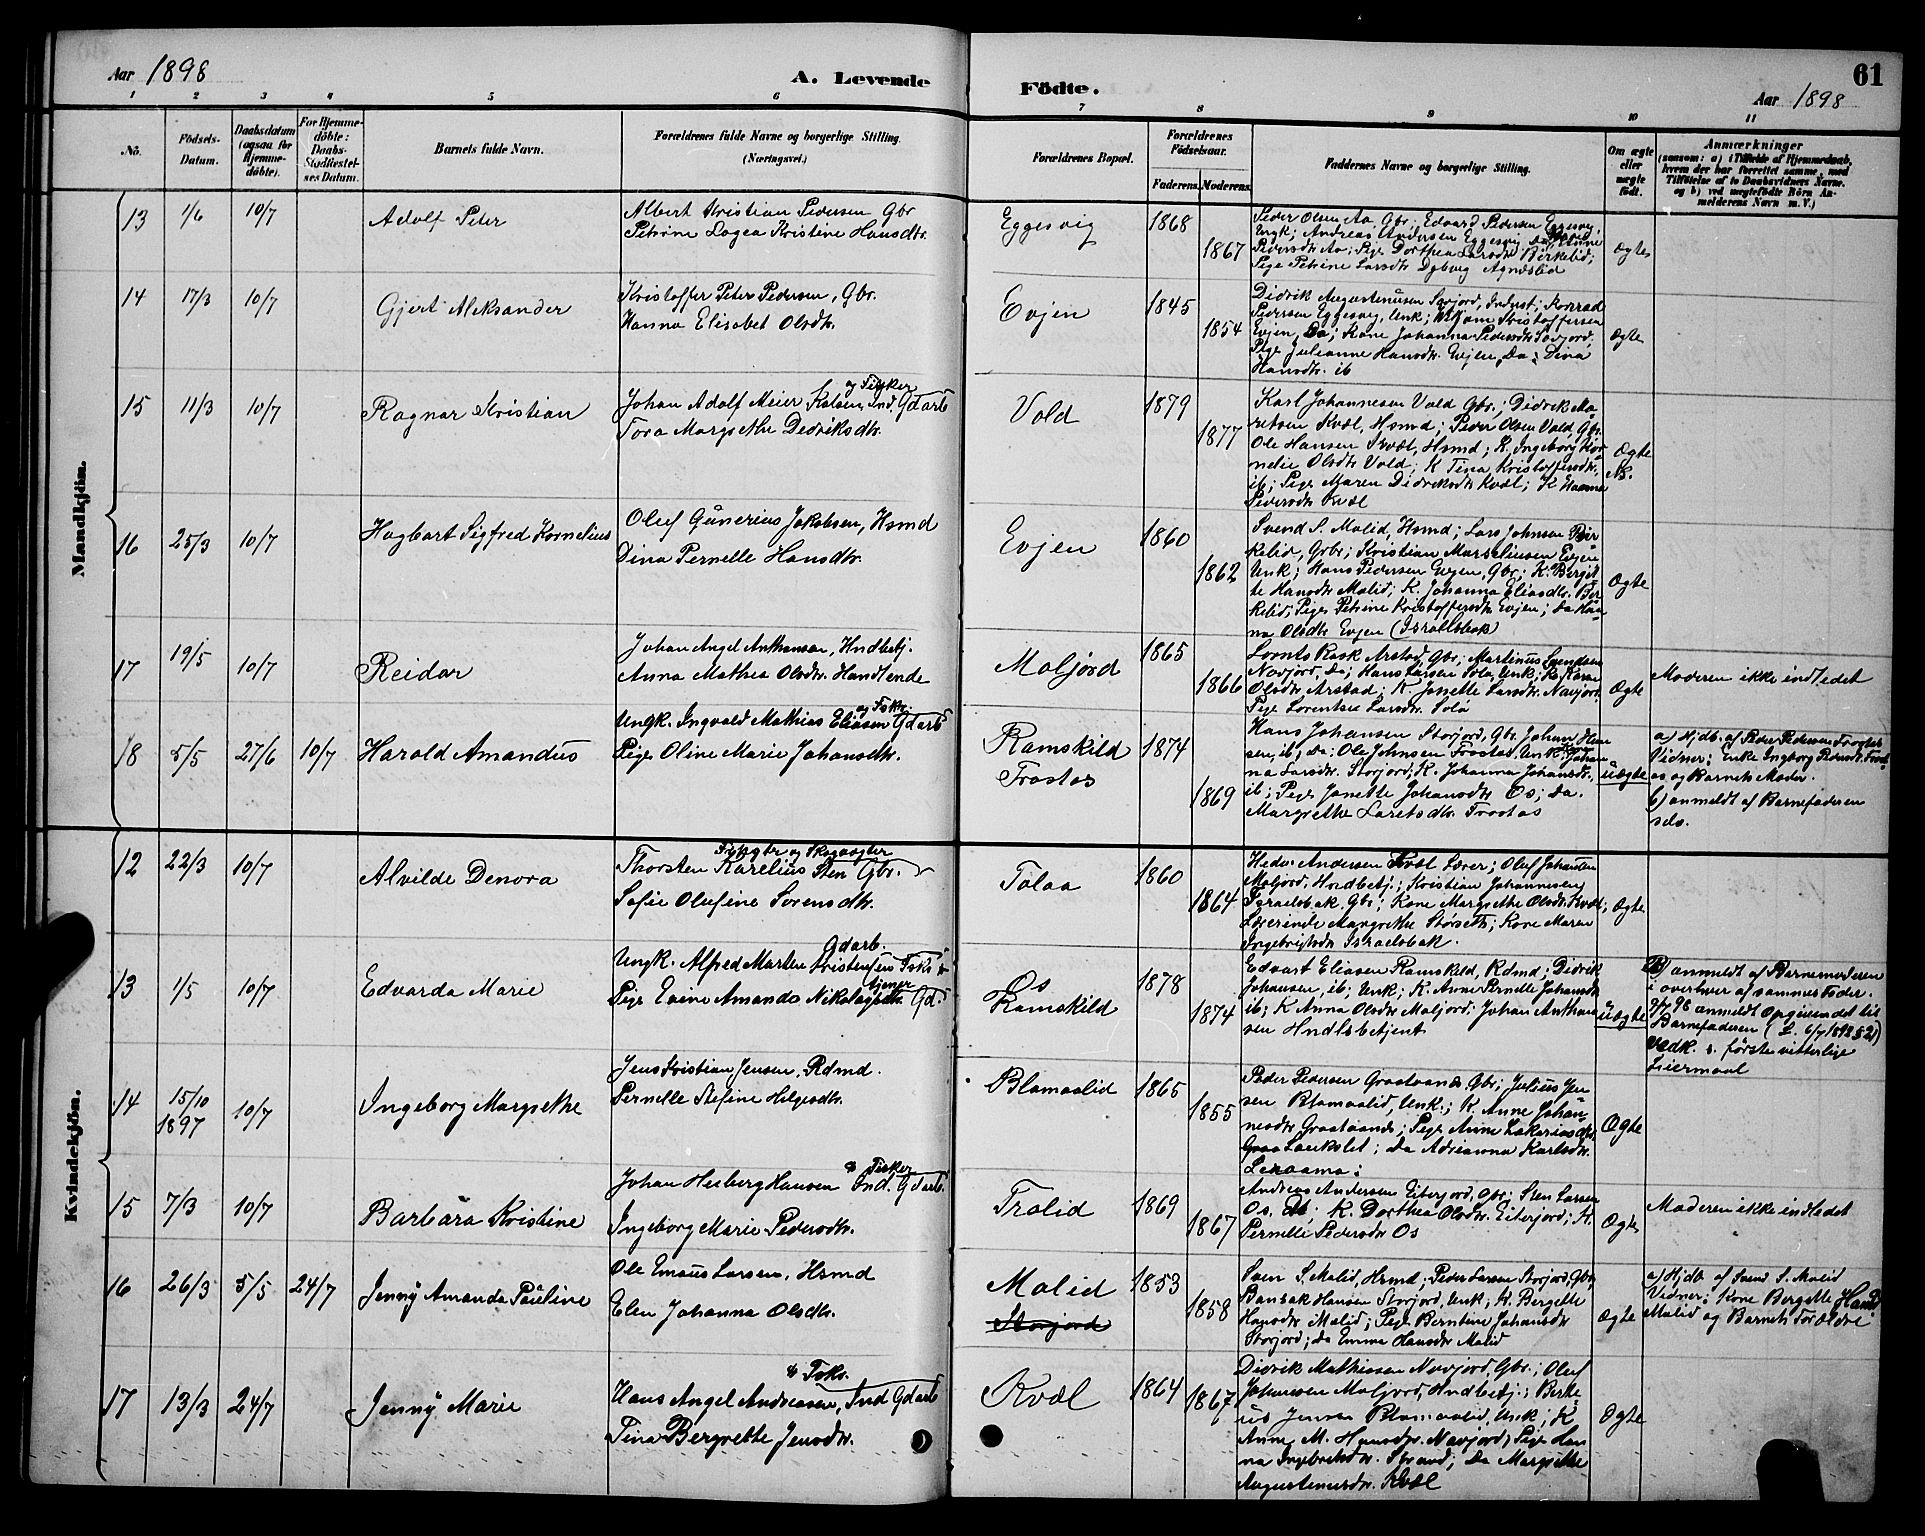 Aar 1898
A. Levende
Födte.
Aar 1898
61
1 2 3 4 5 6 7 8 9 10 11
No.
Födsels-
Datum.
Daabsdatum
(ogsaa for
Hjemme-
döbte).
For Hjemme-
döbte:
Daabs-
Stadfæstel-
ses Datum.
Barnets fulde Navn.
Forældrenes fulde Navne og borgerlige Stilling.
(Næringsvei.)
Forældrenes Bopæl.
Forældrenes
Födselsaar.
Faderens. Moderens.
Faddernes Navne og borgerlige Stilling.
Om ægte
eller
uægte
födt.
Anmærkninger
(saasom: a) i Tilfælde af Hjemmedaab,
hvem der har forrettet samme, med
Tilföielse af to Daabsvidners Navne,
og b) ved uægtefödte Börn An-
melderens Navn m. V.)
Mandkjön.
13 1/6 10/7 Adolf Peter
Albert Kristian Pedersen Gbr
Petrine Lagea Kristine Hansdtr.
Eggesvig 1868 1867
Peder Olsen Aa Gbr; Edvard Pedersen Eggesvig,
Ungk; Andreas Andersen Eggesvig, Da; Anne
Pedersdtr Aa; Pige Dorthea Larsdtr Birkelid;
Pige Petrine Larsdtr
Ægte
14 17/3 10/7 Gjert Aleksander
Kristoffer Peter Pedersen, Gbr.
Hanna Elisabet Olsdtr.
Evjen 1845 1854
Didrik Augustinusen Sørjord, Inderst; Konrad
Pedersen Eggesvig, Unk; Kristoffersen
Evjen, Da; Kone Johanna Pedersdtr Sørjord,
Pige Julianne Hansdtr. Evjen, Da; Dina
Hansdtr. ib
Ægte
15 11/3 10/7 Ragnar Kristian
og Fisker
Johan Adolf Meier Karlsen, Ind. Gdarb
Tora Margrethe Dedriksdtr.
Vold 1879 1877
Karl Johannesen Vold Gbr.; Didrik Ma-
retsen Kvæl, Hsmd; Peder Olsen Vold Gbr.
Ole Hansen Kvæl, Hsmd; K. Ingeborg Kor-
nelie Olsdtr Vold; K Tina Kristoffersdtr.
ib; Pige Maren Didriksdtr Kvæl; K Hanna
Pedersdtr Kvæl
Ægte
16 25/3 10/7 Hagbart Sigfred Kornelius
Oluf Gunerius Jakobsen, Hsmd
Dina Pernelle Hansdtr.
Evjen 1860 1862
Svend S. Malid, Hsmd; Lars Johnsen Bir-
kelid, Gbr; Kristian Marseliusen Evjen
Unk; Hans Pedersen Evjen, Gbr; K. Bergit-
te Hansdtr Malid; K. Johanna Eliasdtr. Bir-
kelid; Pige Petrine Kristoffersdtr Evjen; Da Han-
na Olsdtr Evjen (Israelsbak)
Ægte
17 19/5 10/7 Reidar
Johan Angel Anthonsen, Hndbetj.
Anna Mathea Olsdtr. Handlende
Moljord 1865 1866
Lornts Rask Arstad, Gbr; Martinus Svendsen
Navjord, Da; Hans Larsen Sola, Unk; K. Karen
Olsdtr Arstad; K. Janette Larsdtr. Navjord,
Pige Lorentse Larsdtr. Solø
Ægte
Moderen ikke indledet
18 5/5 27/6 10/7 Harald Amandus
og Fskr.
Ungk. Ingvald Mathias Eliasen Gdarb
Pige Oline Marie Johansdtr.
Ramskild
Trastas
1874 1869
Hans Johansen Storjord, Gbr. Johan Han-
sen, ib, Da; Ole Johnsen Trostas, Unk; Kone Johan-
na Larsdtr. Storjord; K. Johanna Johansdtr.,
ib; Pige Janette Johansdtr Os; Da.
Margrethe Laretsdtr. Trostas
uægte
a) Hjdb. af Peder Pedersen Trostas
Vidner; Enke Ingborg Pedersdtr. Trost-
as og Barnets Moder.
b) anmeldt af Barnefaderen
selv.
Kvindekjön.
12 22/3 10/7 Alvilde Denora
og Skogvogter
Thorsten Karelius Sten Gbr.
Sofie Olufine Sorensdtr.
Tolaa 1860 1864
Hedv. Andersen Kvæl Lærer; Oluf Johansen
Moljord, Hndbetj.; Kristian Johannesen
Israelsbak, Gbr; Kone Margrethe Olsdtr. Kvæl;
Lærerinde Margrethe Storseth; Kone Maren
Ingebrigtsdtr Israelsbak.
Ægte
13 1/5 10/7 Edvarda Marie
Gdarb.
Ungk. Alfred Marten Kristensen Fskr
tjener
Pige Enine Amanda Nikolaisdtr. Gd.
Os
Ramskild
1878 1874
Edvart Eliasen Ramskild, Rdmd; Didrik
Johansen, ib; Unk; K. Anne Pernelle Johansdtr
ib; K Anna Olsdtr Moljord; Johan Anthon-
sen Hndlsbetjent
uægte
b) anmeldt af Barnemoderen
i overhver af sammes Fader.
9/7 98 anmeldt Opgivendet til
Barnefaderen (L. 6/7 1892 § 2)
vedk. s. første vitterlige
Leiermaal
14 15/10 1897 10/7 Ingeborg Margrethe
Jens Kristian Jensen, Rdmd.
Pernelle Stefine Helgesdtr.
Blamaalid 1865 1855
Peder Pedersen Graataand, Gbr; Julius Jen-
sen Blamaalid, Unk.; K. Anne Johan-
nesdtr Graataand; Pige Anne Zakariasdtr.
; Da Adrianna Karlsdtr.
Ægte
15 7/3 10/7 Barbara Kristine
& Fisker
Johan Hesberg Hansen Ind. Gdarb.
Ingeborg Marie Pedersdtr.
Trolid 1869 1867
Andreas Andersen Eiterjord, Gbr; Sten Larsen
Os, Da; K. Dorthea Olsdtr. Eiterjord; K.
Pernelle Pedersdtr Os
Ægte
Moderen ikke indledet
16 26/3 5/5 24/7 Jenny Amanda Pauline
Ole Emaus Larsen, Hsmd
Elen Johanna Olsdtr.
Malid
Storjord
1853 1858
Sven S. Malid, Hsmd; Peder Larsen Storjord, Gbr;
Bansak Hansen Storjord, Unk; K. Bergette
Hansdtr Malid; Pige Berntine Johansdtr
Storjord; Da Emma Hansdtr Malid
Ægte
a) Hjdb. af Svend S. Malid
Vidner; Kone Bergette Hansd.
Malid og Barnets Forældre
17 13/3 24/7 Jenny Marie
& Fskr.
Hans Angel Andreasen, Ind Gdarb
Tina Bergrette Jensdtr.
Kvæl 1864 1867
Didrik Mathiasen Navjord, Gbr; Oluf
Johansen Moljord, Hndbetj.; Berte-
us Jensen Blamaalid, Unk; K
Anne M. Hansdtr. Navjord; Pige Han-
na Ingebretsdtr. Strand; Da Margrethe
Augustinusdtr. Kvæl
Ægte